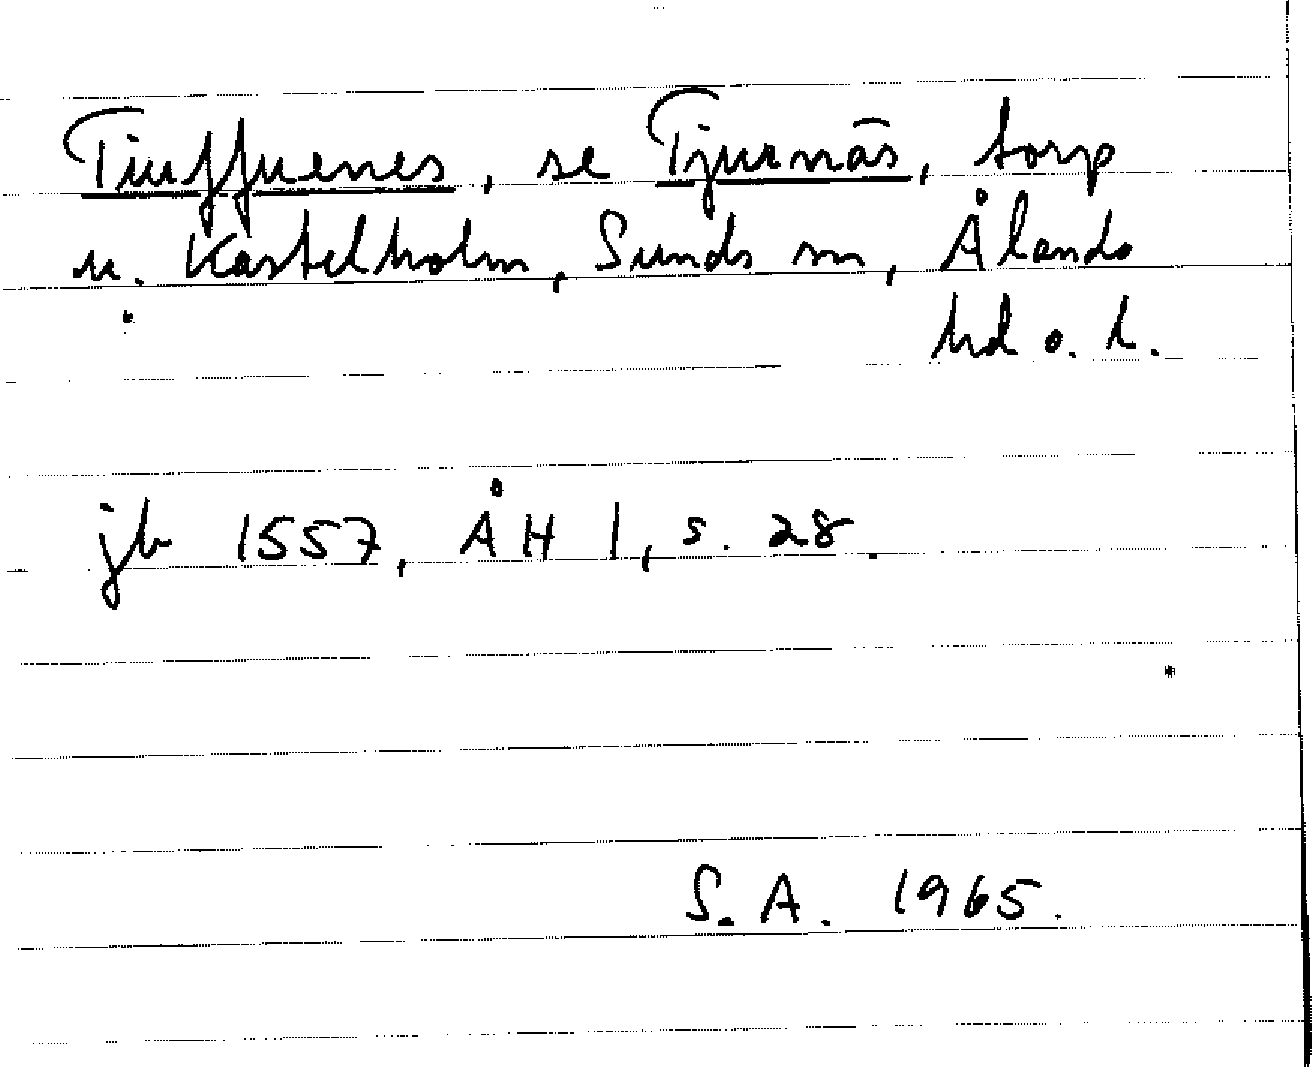 Tiuffuenes, se Tjurnäs, torp
u. Kastelholm, Sunds sn, Ålands
hd o. l.
jb 1557, ÅH I, s. 28.
S. A. 1965.